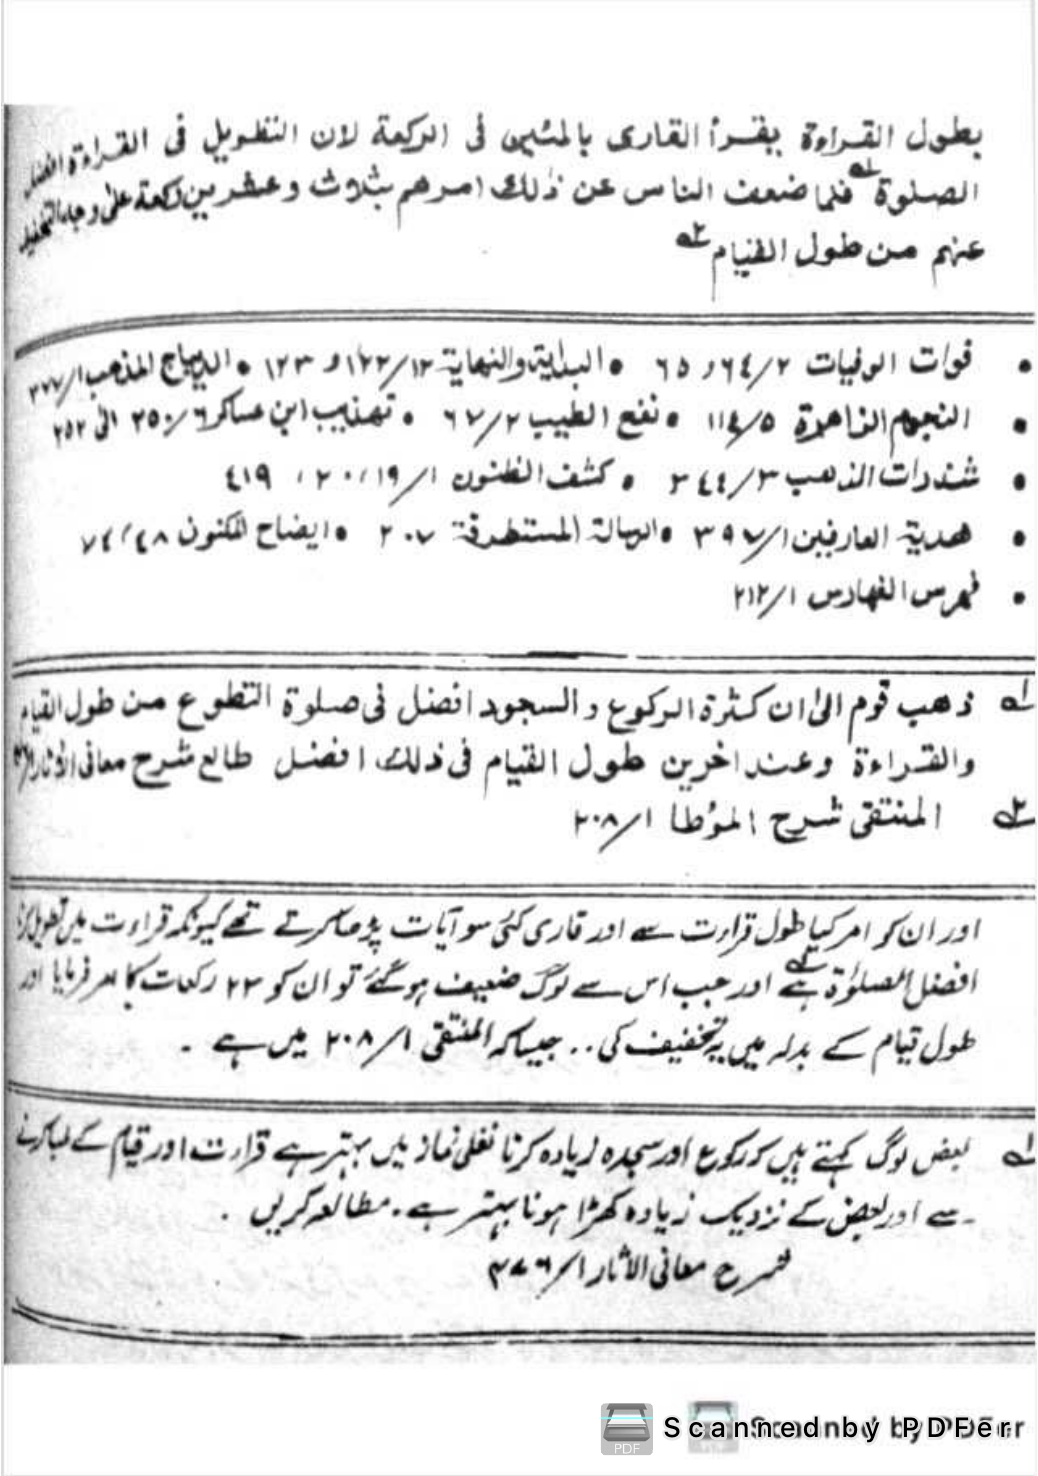 بطول القراءة يقرأ القارى بالمئين فى الركعة لان التطويل فى القراءة افضل
الصلوة لـه فلما ضعف الناس عن ذلك امرهم بثلاث وعشرين ركعة على وجه التخفيف
عنهم من طول القيام ٢ـه
• فوات الوفيات ٦٤/٢ و ٦٥ • البداية والنهاية ١٢٢/١٣ و ١٢٣ • الديباج المذهب
• النجوم الزاهرة ١١٤/٥ • نفح الطيب ٦٧/٢ • تهذيب ابن عساكر ٢٥٠/٦ الى ٢٥٢
• شذرات الذهب ٣٤٤/٣ • كشف الظنون ١٩/١، ٢٠، ٤١٩
• هدية العارفين ٣٩٧/١ • الرسالة المستطرفة ٢٠٧ • ايضاح المكنون ٤٨/ ٧٤
• فهرس الفهارس ٢١٢/١
لـه ذهب قوم الى ان كثرة الركوع والسجود افضل فى صلوة التطوع من طول القيام
والقراءة وعند اخرين طول القيام فى ذلك افضل طالع شرح معانى الأثار
٢ـه المنتقى شرح المؤطا ٢٠٨/١
اور ان کو امر کیا طول قراءت سے اور قاری کئی سو آیات پڑھا کرتے تھے کیونکہ قراءت میں تطویل کرنا
افضل الصلوٰۃ لـه ہے اور جب اس سے لوگ ضعیف ہوگئے تو ان کو ٢٣ رکعات کا امر فرمایا اور
طول قیام کے بدلہ میں یہ تخفیف کی.. جیسا کہ المنتقی ٢٠٨/١ میں ہے .
لـه بعض لوگ کہتے ہیں کہ رکوع اور سجدہ زیادہ کرنا نفلی نماز میں بہتر ہے قراءت اور قیام کے لمبا کرنے
سے اور بعض کے نزدیک زیادہ کھڑا ہونا بہتر ہے. مطالعہ کریں .
شرح معانی الاثار
Scanned by PDFer